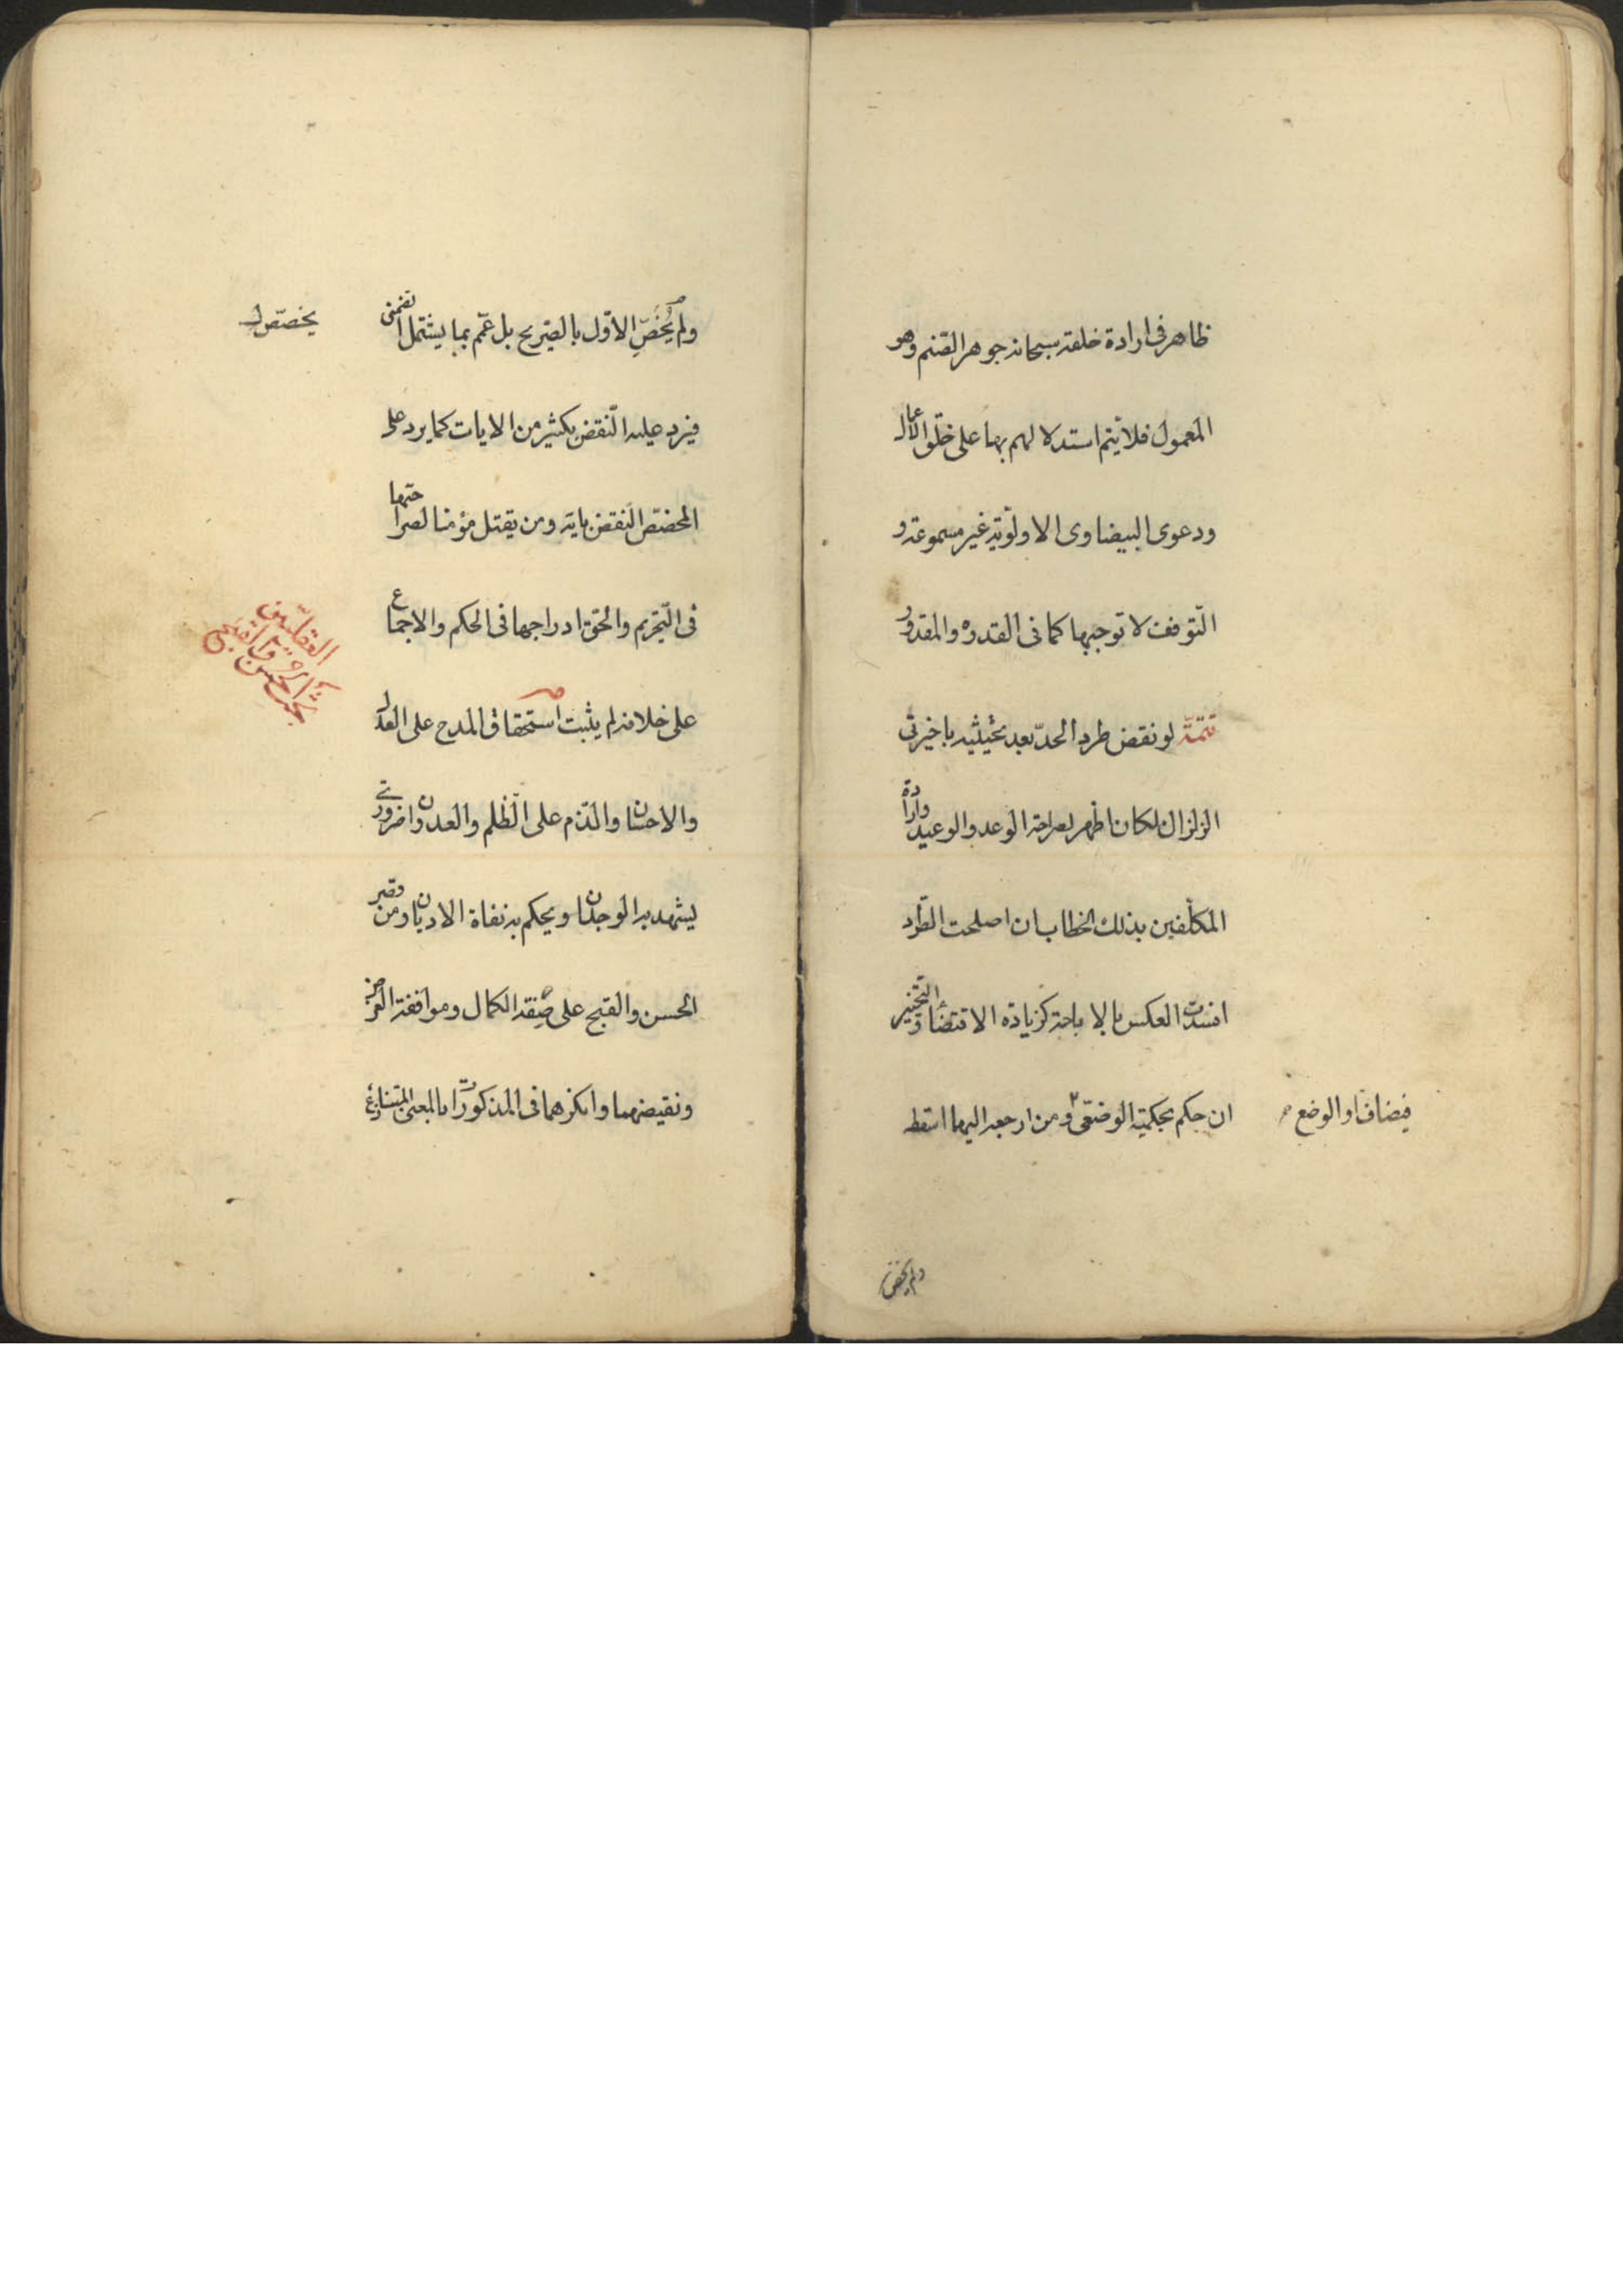 ظاهر فى ارادة خلقه سبحانه جوهر الصنم وهو
المعمول فلا يتم استدلالهم بها على خلق الاعمال
ودعوى البيضاوى الاولوية غير مسموعة و
التوقف لا توجبها كما فى القدرة والمقدور
تتمة لو نقض طرد الحد بعد تحيثيه باخيرتى
الزلزال لكان اظهر لصراحة الوعد والوعيد وارادة
المكلفين بذلك الخطاب ان اصلحت الطرد
افسدت العكس بالاباحة كزيادة الاقتضاء والتخيير
ان حكم بحكمية الوضعى ومن ارجعه اليهما اسقطه
فيضاف او الوضع
ولم يخص
ولم يخص الاول بالصريح بل عمم بما يشتمل التضمنى
يخصص
فيرد عليه النقض بكثير من الايات كما يرد على
المخصص النقض باية ومن يقتل مؤمنا لصراحتها
فى التحريم والحق ادراجها فى الحكم والاجماع
على خلافه لم يثبت استحقاق المدح على العدل
والاحسان والذم على الظلم والعدوان ضرورى
يشهد به الوجدان ويحكم به نفاة الاديان ومن قصر
الحسن والقبح على صفة الكمال وموافقة الغرض
ونقيضهما وانكرهما فى المذكورات بالمعنى المتنازع
بحث الحسن والقبح
العقليين